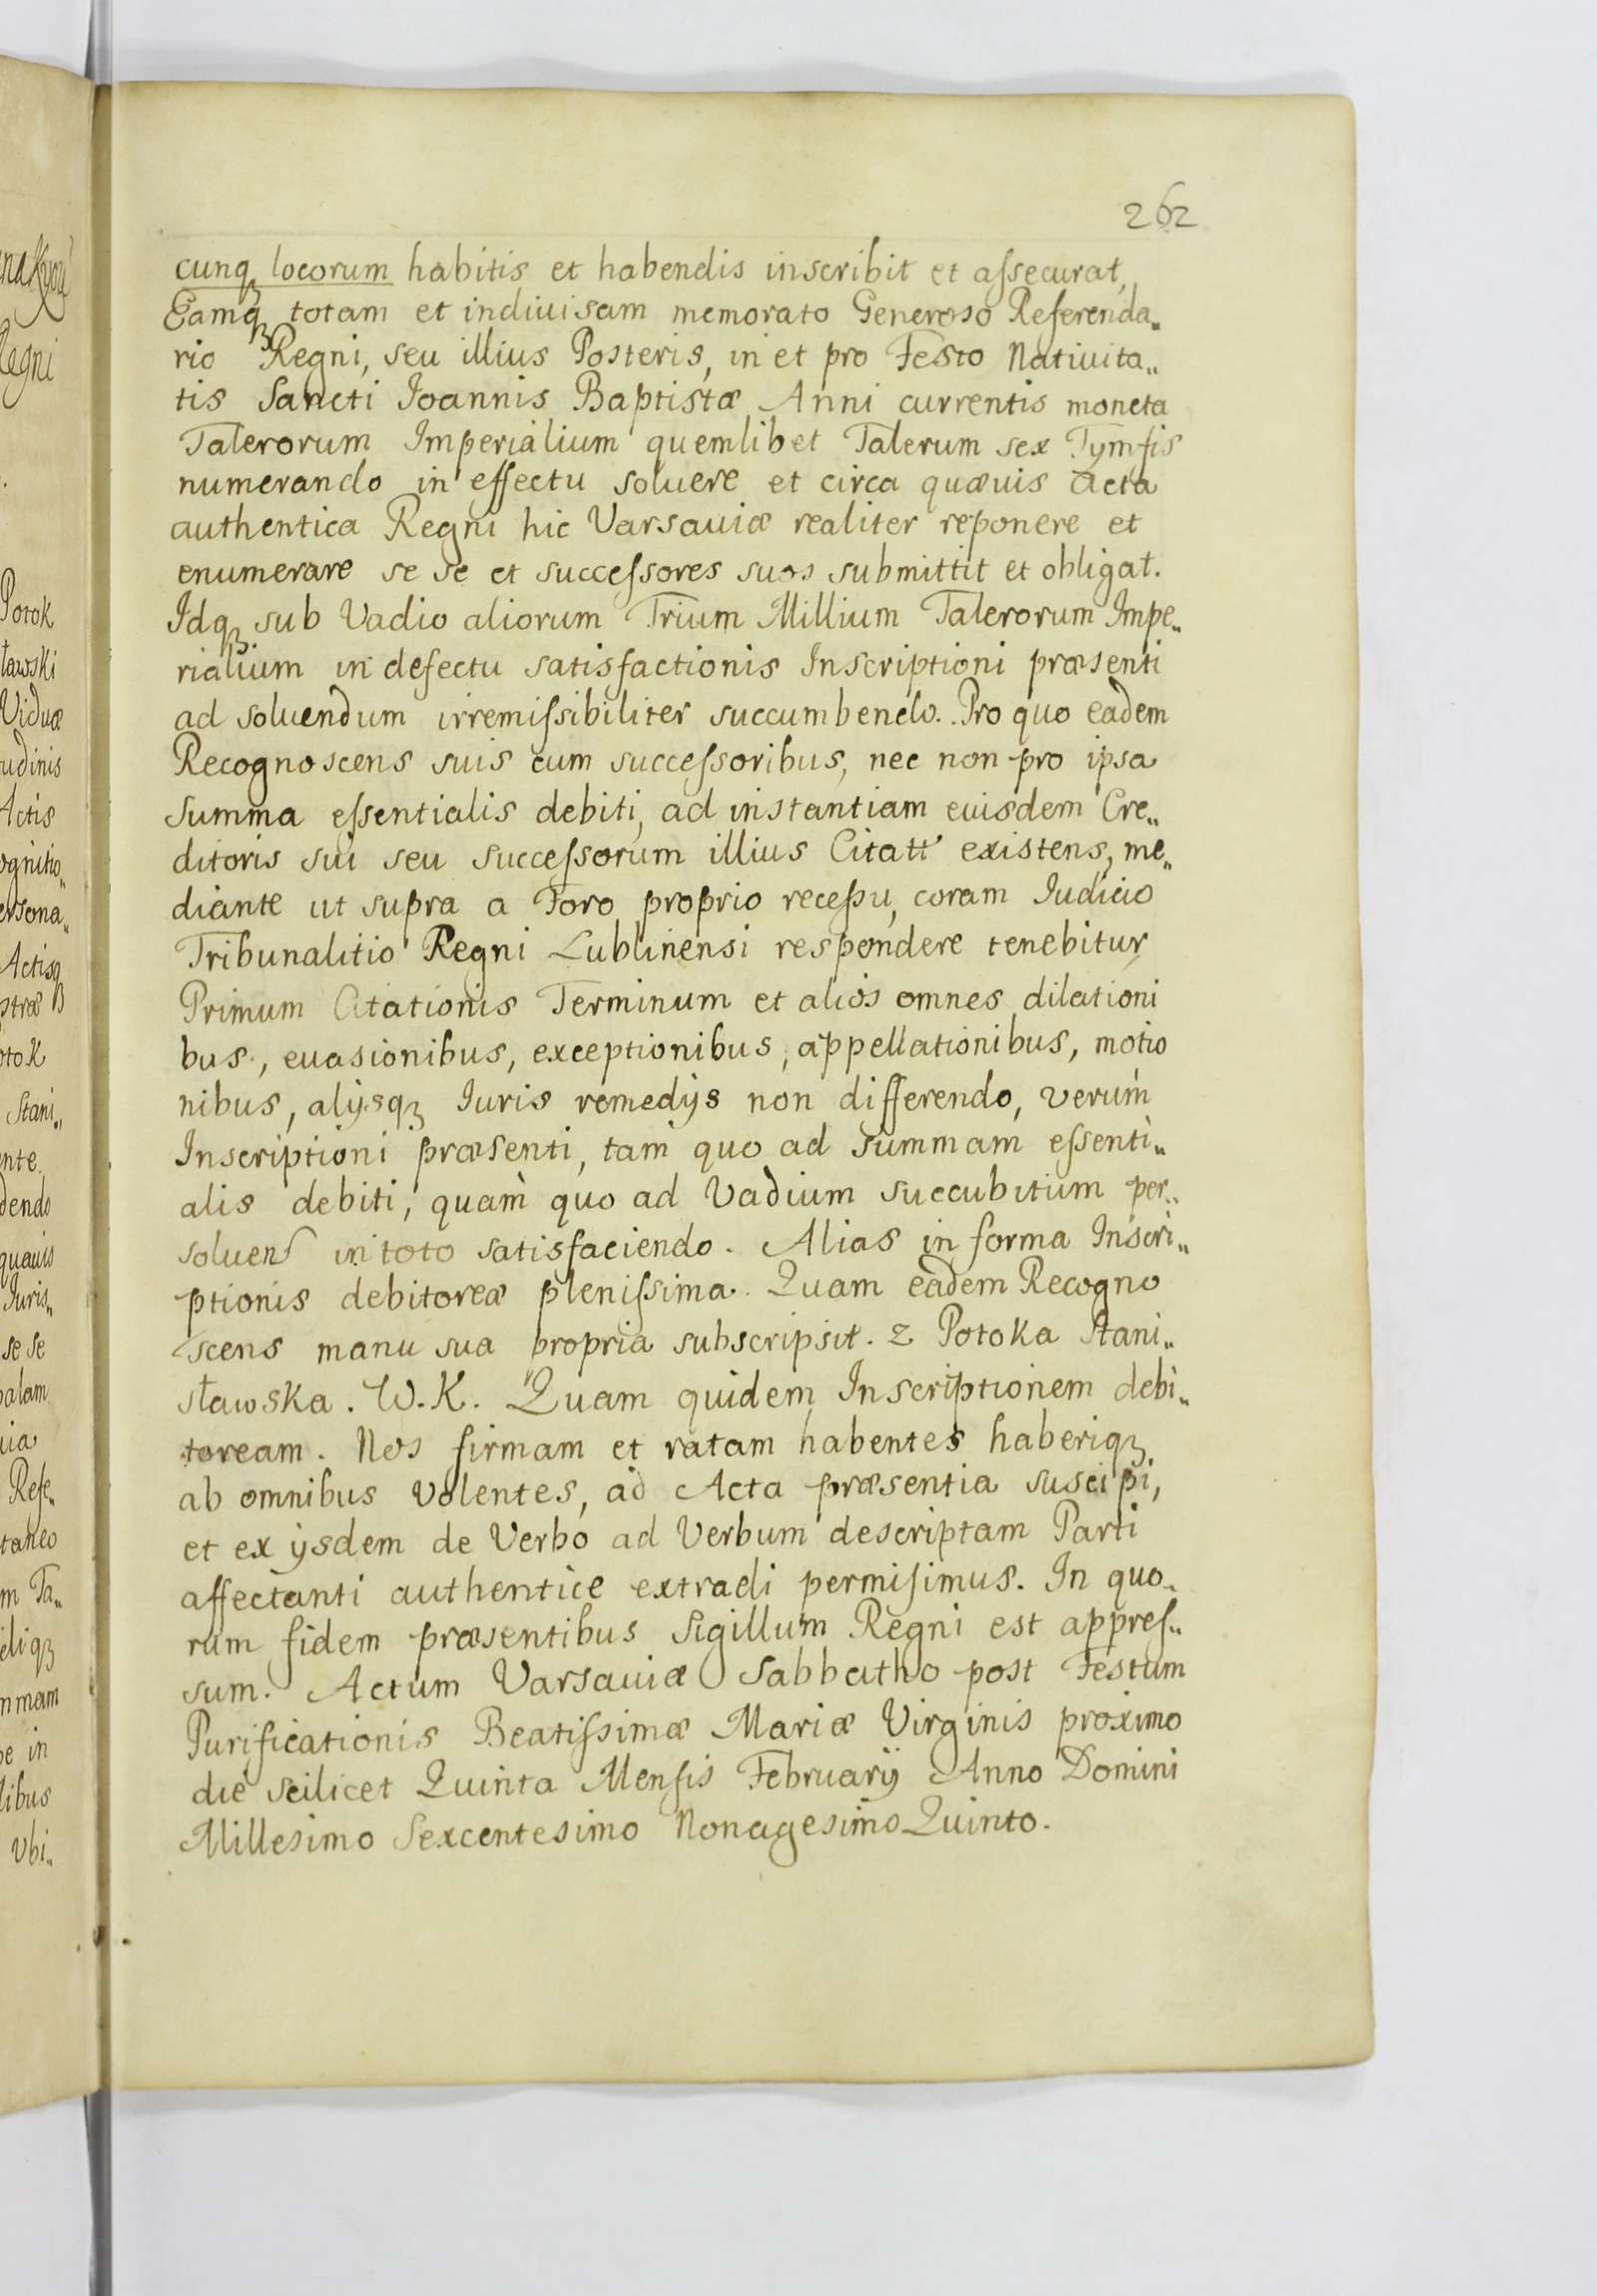 262
cunqꝫ locorum habitis et habendis inscribit et aſsecurat,
Eamqꝫ totam et indiuisam memorato Generoso Referenda„
rio Regni, seu illius Posteris, in et pro Festo Natiuita„
tis Sancti Joannis Baptistæ Anni currentis moneta
Talerorum Imperialium quemlibet Talerum sex Tymfis
numerando in effectu soluere et circa quæuis Acta
authentica Regni hic Varsauiæ realiter reponere et
enumerare se se et succeſsores suos submittit et obligat.
Idqꝫ sub Vadio aliorum Trium Millium Talerorum Impe„
rialium in defectu satisfactionis Inscriptioni præsenti
ad soluendum irremiſsibiliter succumbendo. Pro quo eadem
Recognoscens suis cum succeſsoribus, nec non pro ipsa
Summa eſsentialis debiti, ad instantiam euisdem Cre„
ditoris sui seu Succeſsorum illius Citatt existens, me„
diante ut supra a Foro proprio receſsu, coram Iudicio
Tribunalitio Regni Lublinensi respondere tenebitur
Primum Citationis Terminum et alios omnes dilationi
bus, euasionibus, exceptionibus, appellationibus, motio
nibus, alijsqꝫ Iuris remedijs non differendo, verum
Inscriptioni præsenti, tam quo ad Summam eſsenti„
alis debiti, quam quo ad Vadium succubitum per„
soluen in toto satisfaciendo. Alias in forma Inscri„
ptionis debitoreæ pleniſsima. Quam eadem Recogno
scens manu sua propria subscripsit. Z Potoka Stani„
sławska. W.K. Quam quidem Inscriptionem debi„
toream. Nos firmam et ratam habentes haberiqꝫ
ab omnibus Volentes, ad Acta præsentia suscipi,
et ex ijsdem de Verbo ad Verbum descriptam Parti
affectanti authentice extradi permiſimus. In quo„
rum fidem præsentibus Sigillum Regni est appreſ„
sum. Actum Varsauiæ Sabbatho post Festum
Purificationis Beatiſsimæ Mariæ Virginis proximo
die scilicet Quinta Menſis Februarij Anno Domini
Millesimo Sexcentesimo Nonagesimo Quinto.